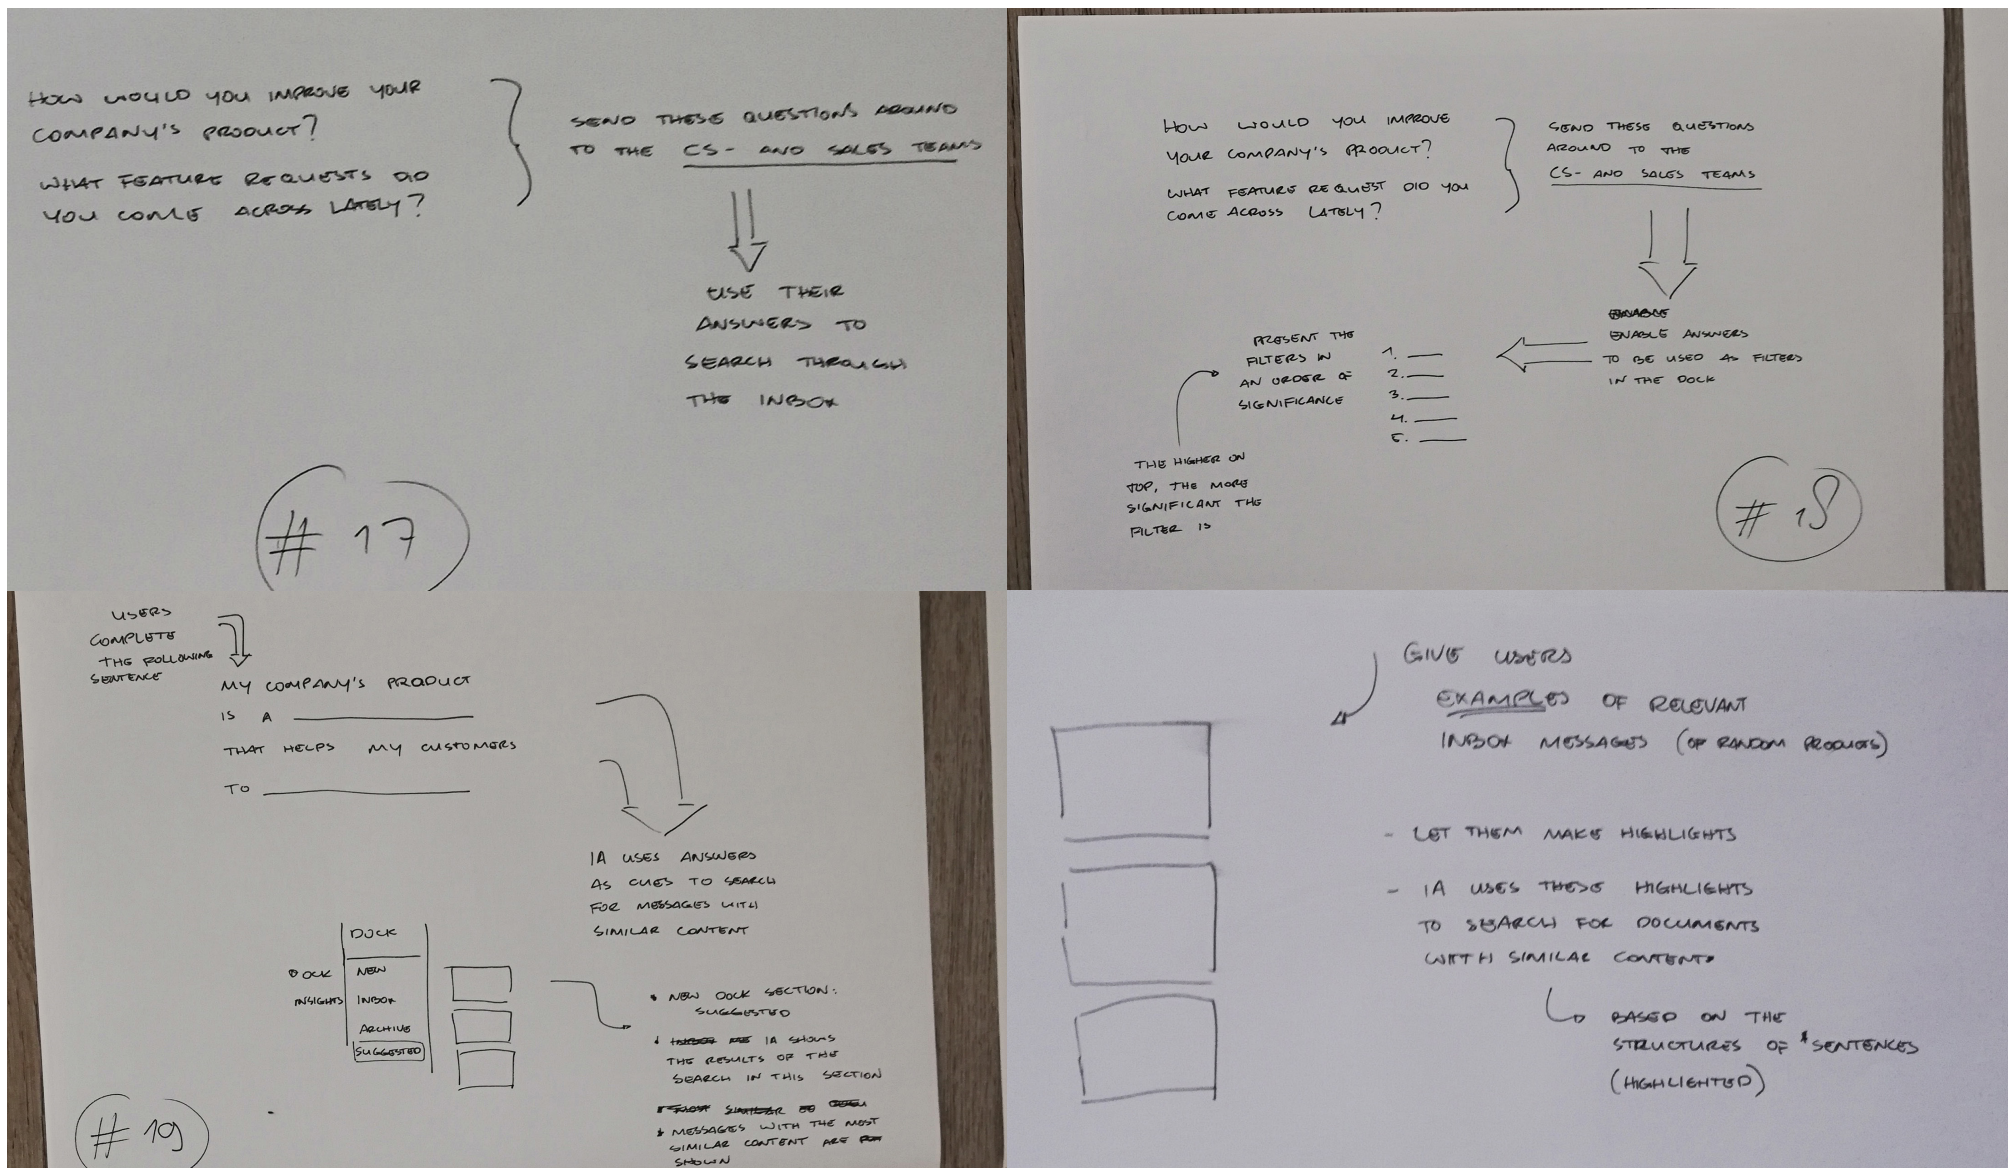 HOW WOULD YOU IMPROVE YOUR
COMPANY'S PRODUCT?
WHAT FEATURE REQUESTS DID
YOU COME ACROSS LATELY?
SEND THESE QUESTIONS AROUND
TO THE CS- AND SALES TEAMS
USE THEIR
ANSWERS TO
SEARCH THROUGH
THE INBOX
# 17
HOW WOULD YOU IMPROVE
YOUR COMPANY'S PRODUCT?
WHAT FEATURE REQUEST DID YOU
COME ACROSS LATELY?
SEND THESE QUESTIONS
AROUND TO THE
CS- AND SALES TEAMS
ENABLE
ENABLE ANSWERS
TO BE USED AS FILTERS
IN THE DOCK
PRESENT THE
FILTERS IN
AN ORDER OF
SIGNIFICANCE
1.
2.
3.
4.
5.
THE HIGHER ON
TOP, THE MORE
SIGNIFICANT THE
FILTER IS
# 18
USERS
COMPLETE
THE FOLLOWING
SENTENCE
MY COMPANY'S PRODUCT
IS A
THAT HELPS MY CUSTOMERS
TO
IA USES ANSWERS
AS CUES TO SEARCH
FOR MESSAGES WITH
SIMILAR CONTENT
DOCK
INSIGHTS
DOCK
NEW
INBOX
ARCHIVE
SUGGESTED
* NEW DOCK SECTION:
SUGGESTED
* IA SHOWS
THE RESULTS OF THE
SEARCH IN THIS SECTION
* MESSAGES WITH THE MOST
SIMILAR CONTENT ARE
SHOWN
# 19
GIVE USERS
EXAMPLES OF RELEVANT
INBOX MESSAGES (OF RANDOM PRODUCTS)
- LET THEM MAKE HIGHLIGHTS
- IA USES THESE HIGHLIGHTS
TO SEARCH FOR DOCUMENTS
WITH SIMILAR CONTENT
BASED ON THE
STRUCTURES OF SENTENCES
(HIGHLIGHTED)